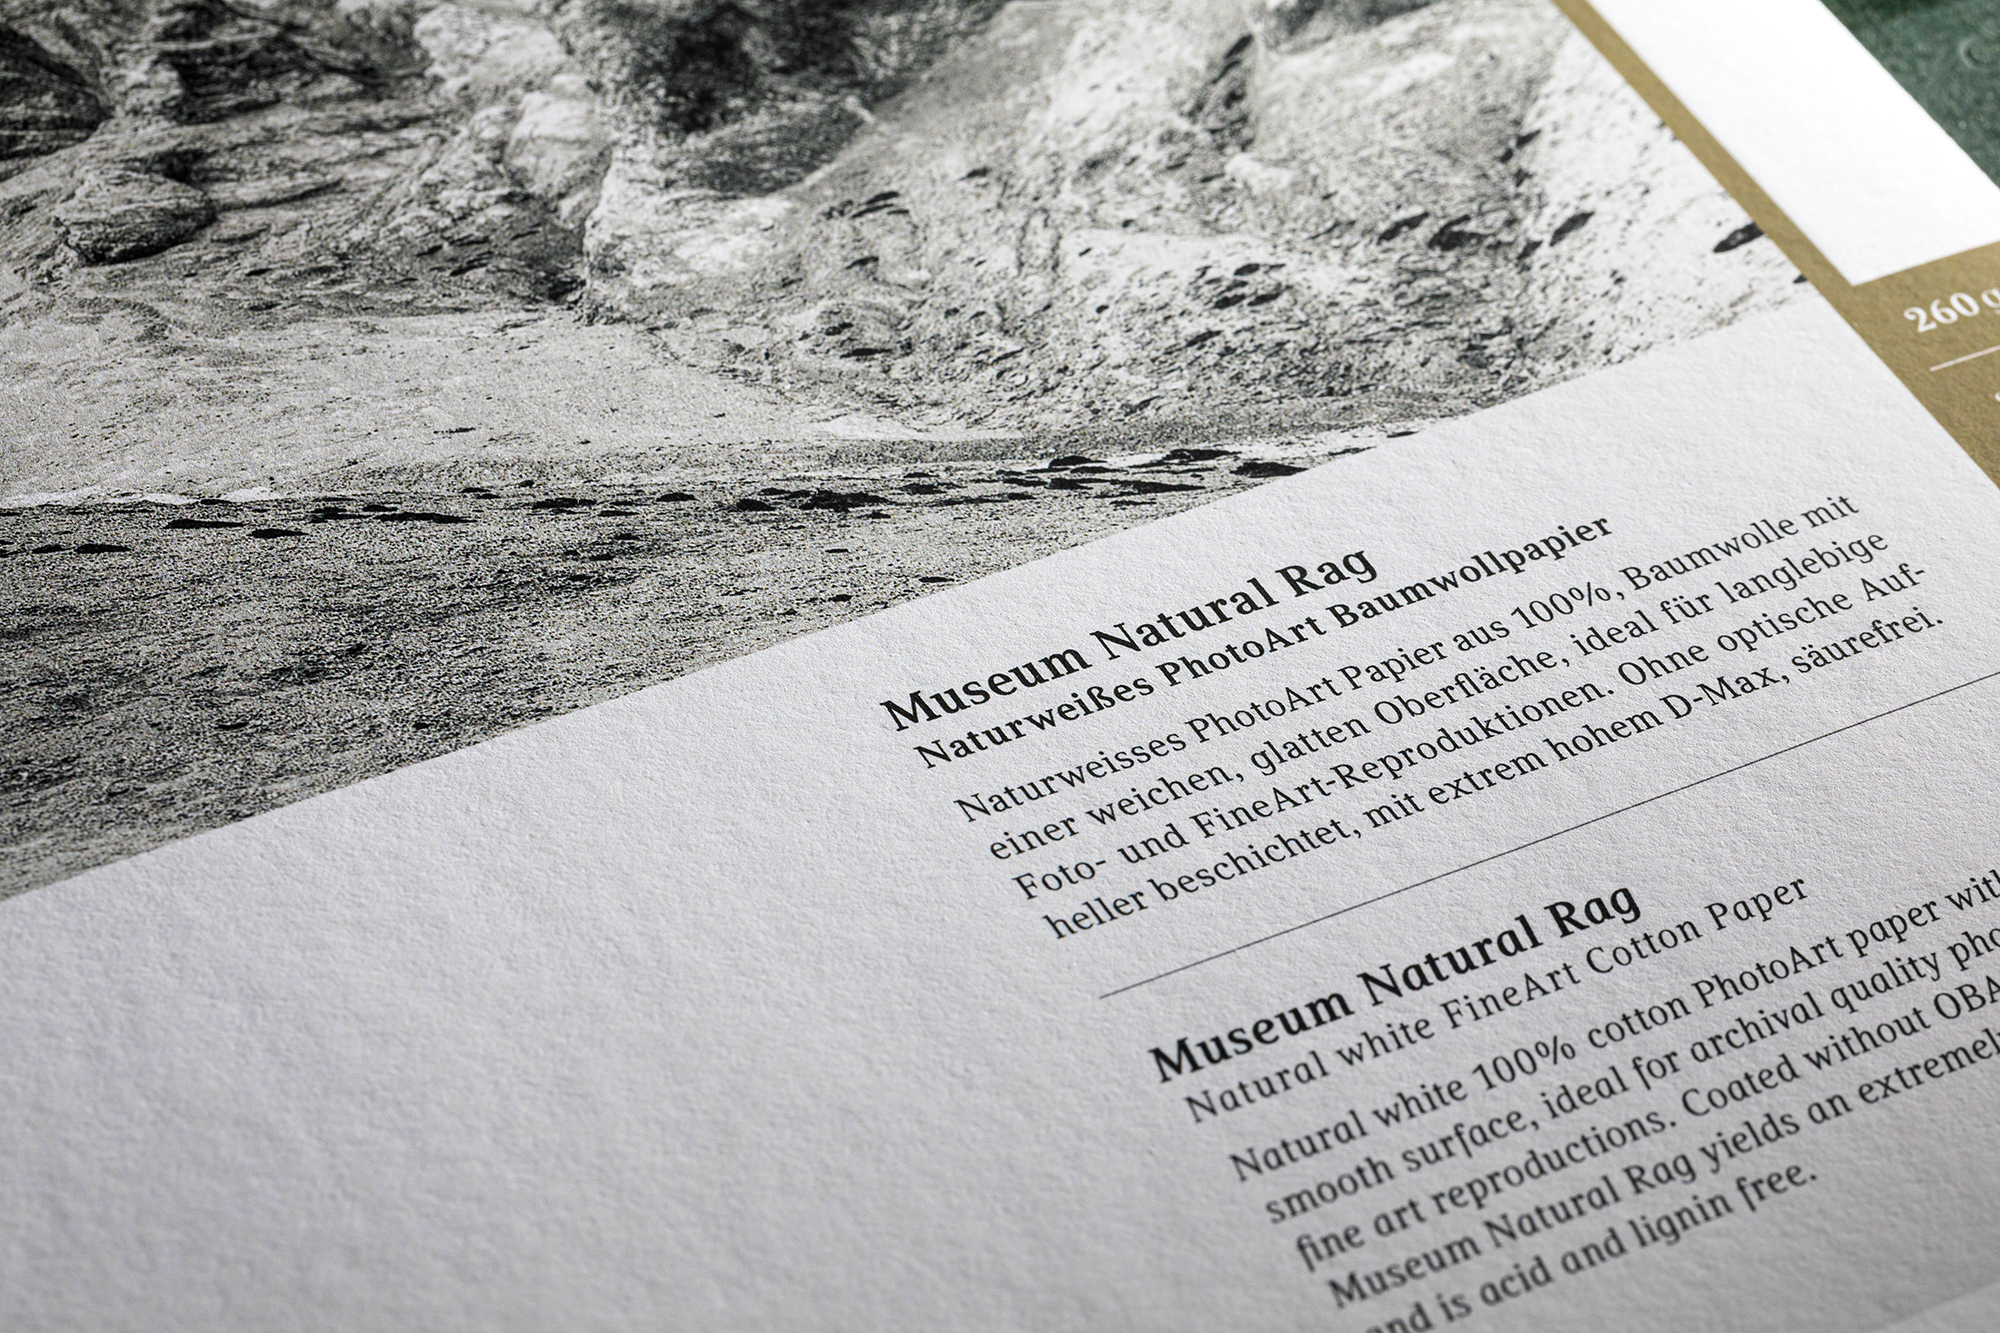 260 g
Museum Natural Rag
Naturweißes PhotoArt Baumwollpapier
Naturweisses PhotoArt Papier aus 100%, Baumwolle mit
einer weichen, glatten Oberfläche, ideal für langlebige
Foto- und FineArt-Reproduktionen. Ohne optische Auf-
heller beschichtet, mit extrem hohem D-Max, säurefrei.
Museum Natural Rag
Natural white FineArt Cotton Paper
Natural white 100% cotton PhotoArt paper with
smooth surface, ideal for archival quality pho
fine art reproductions. Coated without OBA
Museum Natural Rag yields an extremely
and is acid and lignin free.